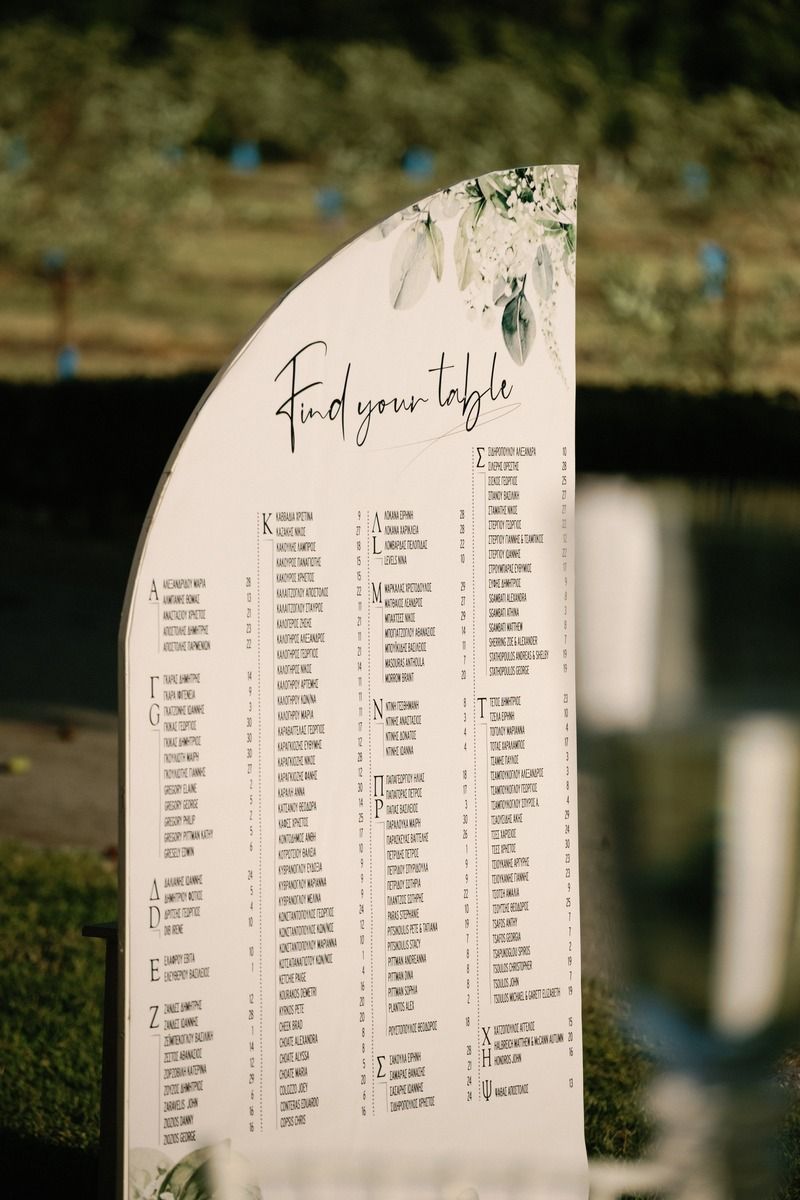 Find your table
Α
ΑΛΕΞΑΝΔΡΙΔΟΥ ΜΑΡΙΑ 28
ΑΛΜΠΑΝΗΣ ΘΩΜΑΣ 13
ΑΝΑΣΤΑΣΙΟΥ ΧΡΗΣΤΟΣ 21
ΑΠΟΣΤΟΛΗΣ ΔΗΜΗΤΡΗΣ 23
ΑΠΟΣΤΟΛΗΣ ΠΑΡΜΕΝΙΩΝ 22
Γ
G
ΓΚΑΡΑΣ ΔΗΜΗΤΡΗΣ 14
ΓΚΑΡΑ ΙΦΙΓΕΝΕΙΑ 9
ΓΚΑΤΖΩΝΗΣ ΙΩΑΝΝΗΣ 3
ΓΚΙΚΑΣ ΓΕΩΡΓΙΟΣ 30
ΓΚΙΚΑΣ ΔΗΜΗΤΡΗΣ 30
ΓΚΟΥΛΙΩΤΗ ΜΑΙΡΗ 30
ΓΚΟΥΛΙΩΤΗΣ ΓΙΑΝΝΗΣ 27
GREGORY ELAINE 2
GREGORY GEORGE 5
GREGORY PHILIP 2
GREGORY PITTMAN KATHY 5
GRESELY EDWIN 6
Δ
D
ΔΑΛΙΑΝΗΣ ΙΩΑΝΝΗΣ 24
ΔΗΜΗΤΡΙΟΥ ΦΩΤΙΟΣ 5
ΔΡΙΤΣΗΣ ΓΕΩΡΓΙΟΣ 4
DIB IRENE 10
Ε
ΕΛΑΦΡΟΥ ΕΒΙΤΑ 10
ΕΛΕΥΘΕΡΙΟΥ ΒΑΣΙΛΕΙΟΣ 1
Ζ
ΖΑΝΔΕΣ ΔΗΜΗΤΡΗΣ 12
ΖΑΝΔΕΣ ΙΩΑΝΝΗΣ 28
ΖΕΜΠΕΚΟΓΛΟΥ ΒΑΣΙΛΙΚΗ 1
ΖΕΣΤΟΣ ΑΘΑΝΑΣΙΟΣ 14
ΖΟΡΖΟΒΙΛΗ ΚΑΤΕΡΙΝΑ 12
ΖΟΥΖΟΣ ΔΗΜΗΤΡΙΟΣ 29
ZARAVELIS JOHN 16
ZIOZIOS DANNY 16
ZIOZIOS GEORGE 16
Κ
ΚΑΒΒΑΔΙΑ ΧΡΙΣΤΙΝΑ 9
ΚΑΖΑΚΗΣ ΝΙΚΟΣ 27
ΚΑΚΟΥΛΗΣ ΛΑΜΠΡΟΣ 18
ΚΑΚΟΥΡΟΣ ΠΑΝΑΓΙΩΤΗΣ 15
ΚΑΚΟΥΡΟΣ ΧΡΗΣΤΟΣ 15
ΚΑΛΑΙΤΖΟΓΛΟΥ ΑΠΟΣΤΟΛΟΣ 22
ΚΑΛΑΙΤΖΟΓΛΟΥ ΣΤΑΥΡΟΣ 11
ΚΑΛΟΓΕΡΟΣ ΖΗΣΗΣ 21
ΚΑΛΟΓΗΡΟΣ ΑΛΕΞΑΝΔΡΟΣ 11
ΚΑΛΟΓΗΡΟΣ ΓΕΩΡΓΙΟΣ 21
ΚΑΛΟΓΗΡΟΣ ΝΙΚΟΣ 14
ΚΑΛΟΓΗΡΟΥ ΑΡΤΕΜΗΣ 11
ΚΑΛΟΓΗΡΟΥ ΚΩΝ/ΝΑ 11
ΚΑΛΟΓΗΡΟΥ ΜΑΡΙΑ 11
ΚΑΡΑΒΑΓΓΕΛΑΣ ΓΕΩΡΓΙΟΣ 17
ΚΑΡΑΓΚΙΟΖΗΣ ΕΥΘΥΜΗΣ 12
ΚΑΡΑΓΚΙΟΖΗΣ ΝΙΚΟΣ 28
ΚΑΡΑΓΚΙΟΖΗΣ ΦΑΝΗΣ 12
ΚΑΡΑΛΗ ΑΝΝΑ 30
ΚΑΤΣΙΑΝΟΥ ΘΕΟΔΩΡΑ 14
ΚΑΨΕΣ ΧΡΗΣΤΟΣ 25
ΚΟΝΤΟΔΗΜΟΣ ΑΝΘΗ 17
ΚΟΤΡΩΤΣΙΟΥ ΘΑΛΕΙΑ 10
ΚΥΒΡΑΝΟΓΛΟΥ ΕΥΔΟΞΙΑ 9
ΚΥΒΡΑΝΟΓΛΟΥ ΜΑΡΙΑΝΝΑ 9
ΚΥΒΡΑΝΟΓΛΟΥ ΜΕΛΙΝΑ 9
ΚΩΝΣΤΑΝΤΟΠΟΥΛΟΣ ΓΕΩΡΓΙΟΣ 24
ΚΩΝΣΤΑΝΤΟΠΟΥΛΟΣ ΚΩΝ/ΝΟΣ 12
ΚΩΝΣΤΑΝΤΟΠΟΥΛΟΥ ΜΑΡΙΑΝΝΑ 10
ΚΩΤΣΑΠΑΝΑΓΙΩΤΟΥ ΚΩΝ/ΝΟΣ 1
KETCHIE PAIGE 16
KOURAKOS DEMETRI 20
KYRKOS PETE 20
CHEEK BRAD 8
CHOATE ALEXANDRA 8
CHOATE ALYSSA 5
CHOATE MARIA 20
COLOZZO JOEY 6
CONTERAS EDUARDO 16
COPSIS CHRIS
Λ
L
ΛΟΚΑΝΑ ΕΙΡΗΝΗ 28
ΛΟΚΑΝΑ ΧΑΡΙΚΛΕΙΑ 28
ΛΟΜΒΑΡΔΑΣ ΠΕΛΟΠΙΔΑΣ 22
LEVELS NINA 10
Μ
ΜΑΡΚΑΛΑΣ ΧΡΙΣΤΟΔΟΥΛΟΣ 29
ΜΑΤΘΑΙΟΣ ΛΕΑΝΔΡΟΣ 27
ΜΠΑΧΤΣΕΣ ΝΙΚΟΣ 29
ΜΠΟΓΙΑΤΖΟΓΛΟΥ ΑΘΑΝΑΣΙΟΣ 14
ΜΠΟΥΚΙΔΗΣ ΒΑΣΙΛΕΙΟΣ 11
MASOURAS ANTHOULA 7
MORROW BRANT 20
Ν
ΝΤΙΝΗ ΓΕΣΘΗΜΑΝΗ 8
ΝΤΙΝΗΣ ΑΝΑΣΤΑΣΙΟΣ 3
ΝΤΙΝΗΣ ΔΟΝΑΤΟΣ 4
ΝΤΙΝΗΣ ΙΩΑΝΝΑ 4
Π
P
ΠΑΠΑΓΕΩΡΓΙΟΥ ΗΛΙΑΣ 18
ΠΑΠΑΓΟΡΑΣ ΠΕΤΡΟΣ 17
ΠΑΠΑΣ ΒΑΣΙΛΕΙΟΣ 3
ΠΑΡΑΛΟΥΚΑ ΜΑΙΡΗ 30
ΠΑΡΑΣΚΕΥΑΣ ΒΑΓΓΕΛΗΣ 26
ΠΕΤΡΙΔΗΣ ΠΕΤΡΟΣ 1
ΠΕΤΡΙΔΟΥ ΣΠΥΡΙΔΟΥΛΑ 9
ΠΕΤΡΙΔΟΥ ΣΩΤΗΡΙΑ 9
ΠΛΑΝΤΖΟΣ ΣΩΤΗΡΗΣ 22
PARRAS STEPHANIE 10
PITSIKOULIS PETE & TATIANA 19
PITSIKOULIS STACY 7
PITTMAN ANDREANNA 8
PITTMAN DINA 6
PITTMAN SOPHIA 8
PLANTOS ALEX 2
ΡΟΥΣΤΟΠΟΥΛΟΣ ΘΕΟΔΩΡΟΣ 18
Σ
ΣΑΚΟΥΛΑ ΕΙΡΗΝΗ 28
ΣΑΜΑΡΑΣ ΘΑΝΑΣΗΣ 21
ΣΑΣΑΡΗΣ ΙΩΑΝΝΗΣ 24
ΣΙΔΗΡΟΠΟΥΛΟΣ ΧΡΗΣΤΟΣ 24
Σ
ΣΙΔΗΡΟΠΟΥΛΟΥ ΑΛΕΞΑΝΔΡΑ 10
ΣΙΛΕΡΗΣ ΟΡΕΣΤΗΣ 28
ΣΙΣΚΟΣ ΓΕΩΡΓΙΟΣ 25
ΣΠΑΝΟΥ ΒΑΣΙΛΙΚΗ 27
ΣΤΑΜΑΤΗΣ ΝΙΚΟΣ 27
ΣΤΕΡΓΙΟΥ ΓΕΩΡΓΙΟΣ 22
ΣΤΕΡΓΙΟΥ ΓΙΑΝΝΗΣ & ΤΣΑΜΠΙΚΟΣ 12
ΣΤΕΡΓΙΟΥ ΙΩΑΝΝΗΣ 22
ΣΤΡΟΥΜΠΑΡΑΣ ΕΥΘΥΜΙΟΣ 11
ΣΥΨΗΣ ΔΗΜΗΤΡΙΟΣ 9
SGAMBATI ALEXANDRA 8
SGAMBATI ATHINA 3
SGAMBATI MATTHEW 8
SHERRING ZOE & ALEXANDER 7
STATHOPOULOS ANDREAS & SHELBY 19
STATHOPOULOS GEORGE 19
Τ
ΤΕΤΟΣ ΔΗΜΗΤΡΙΟΣ 23
ΤΖΕΛΑ ΕΙΡΗΝΗ 10
ΤΟΓΙΛΟΥ ΜΑΡΙΑΝΝΑ 4
ΤΟΤΑΣ ΧΑΡΑΛΑΜΠΟΣ 17
ΤΣΑΜΗΣ ΠΑΥΛΟΣ 3
ΤΣΑΜΠΟΥΚΟΓΛΟΥ ΑΛΕΞΑΝΔΡΟΣ 3
ΤΣΑΜΠΟΥΚΟΓΛΟΥ ΓΕΩΡΓΙΟΣ 8
ΤΣΑΜΠΟΥΚΟΓΛΟΥ ΣΠΥΡΟΣ Α. 4
ΤΣΙΑΟΥΣΙΔΗΣ ΑΚΗΣ 29
ΤΣΕΣ ΧΑΡΙΣΙΟΣ 24
ΤΣΕΣ ΧΡΗΣΤΟΣ 30
ΤΣΙΟΥΚΑΝΗΣ ΑΡΓΥΡΗΣ 23
ΤΣΙΟΥΚΑΝΗΣ ΓΙΑΝΝΗΣ 23
ΤΣΙΩΤΣΗ ΑΜΑΛΙΑ 9
ΤΣΙΟΥΤΣΗΣ ΘΕΟΔΩΡΟΣ 25
TSAFOS ANTHY 7
TSAFOS GEORGIA 7
TSAPUKOGLOU SPIROS 2
TSOULOS CHRISTOPHER 19
TSOULOS JOHN 7
TSOULOS MICHAEL & GARETT ELIZABETH 19
Χ
Η
ΧΑΤΖΟΠΟΥΛΟΣ ΑΓΓΕΛΟΣ 15
HALBREICH MATTHEW & McCANN AUTUMN 20
HONDROS JOHN 16
Ψ
ΨΑΘΑΣ ΑΠΟΣΤΟΛΟΣ 13